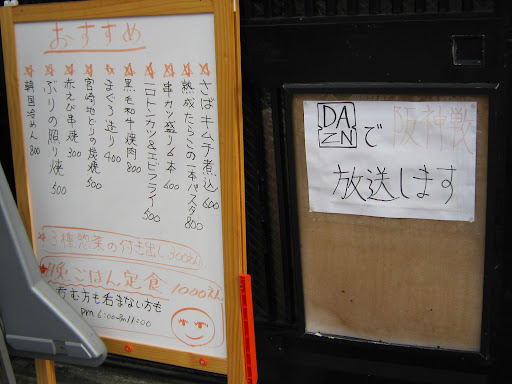 おすすめ
☆さばキムチ煮込 600
☆熟成たらこの一本パスタ 800
☆串カツ盛り6本 600
☆一口トンカツ&エビフライ 500
☆黒毛和牛焼肉 800
☆まぐろ造り 400
☆宮崎地とりの炭焼 500
☆赤えび串焼 300
☆ぶりの照り焼 500
☆韓国冷めん 800
☆3種惣菜の付き出し 300えん
☆晩ごはん定食 1000えん
呑む方も呑まない方も
pm 6:00~pm11:00
DAZNで 阪神戦
放送します